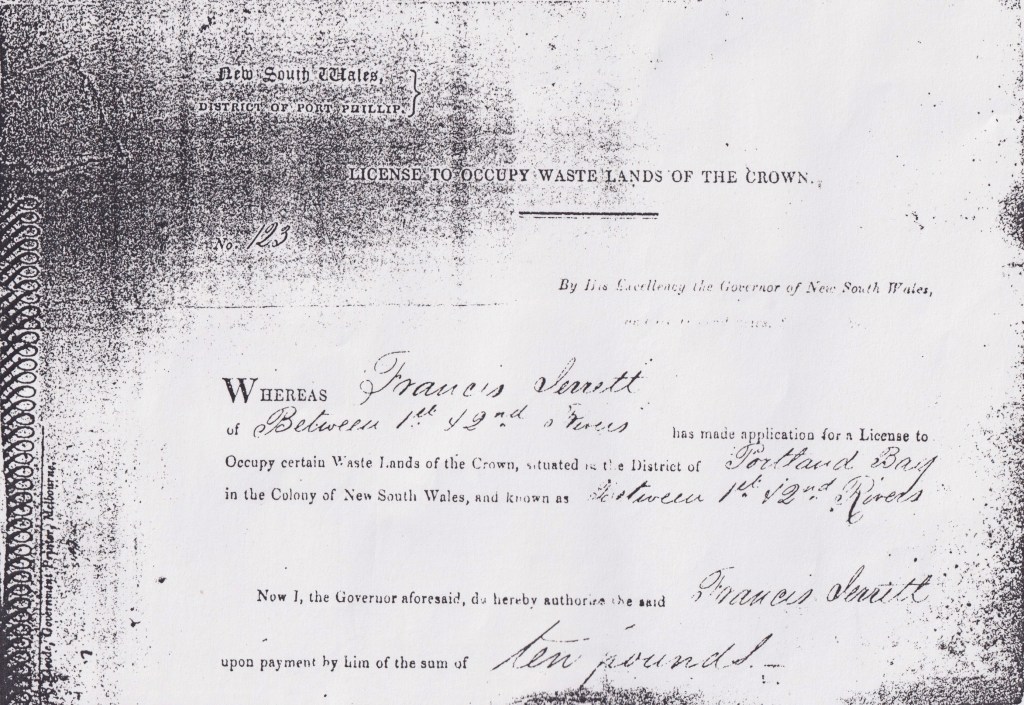 New South Wales,
DISTRICT OF PORT PHILLIP.
LICENSE TO OCCUPY WASTE LANDS OF THE CROWN.
No. 123
By His Excellency the Governor of New South Wales,
WHEREAS Francis Jerrett
of Between 1st & 2nd Rivers has made application for a License to
Occupy certain Waste Lands of the Crown, situated in the District of Portland Bay
in the Colony of New South Wales, and known as Between 1st & 2nd Rivers
Now I, the Governor aforesaid, do hereby authorize the said Francis Jerrett
upon payment by him of the sum of ten pounds.—
Government Printer, Melbourne.